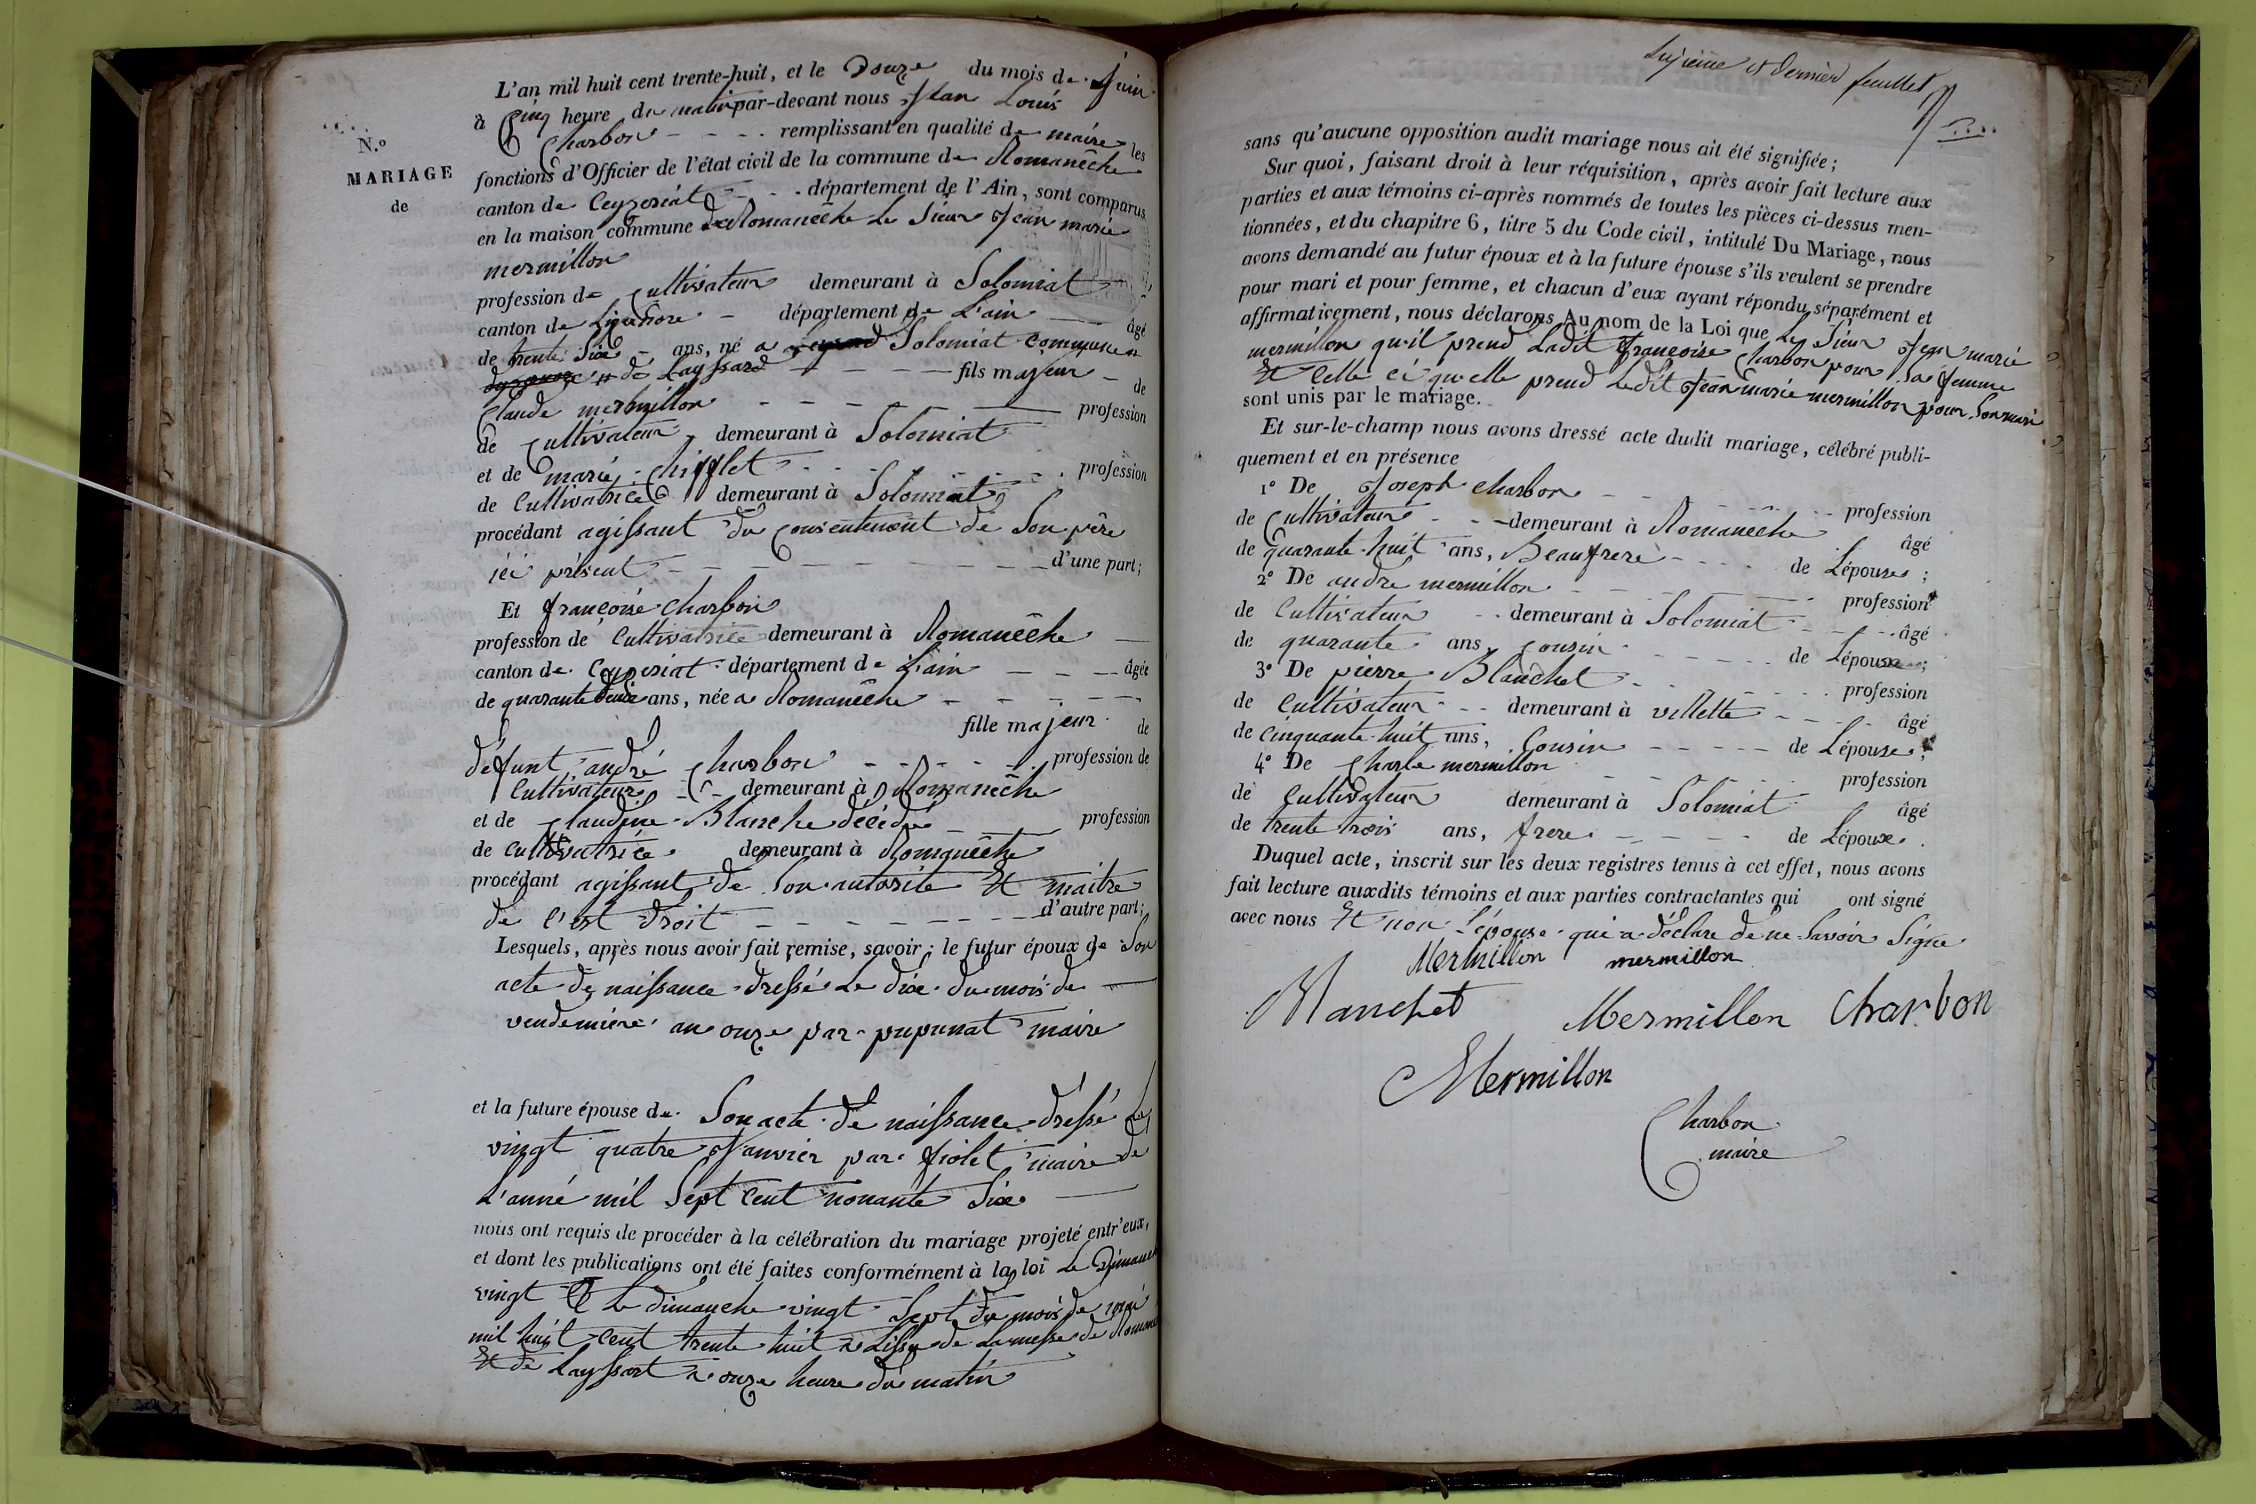 N.º
MARIAGE
de
L'an mil huit cent trente-huit, et le Douze du mois de Juin
à Cinq heure du matin par-devant nous Jean Louis
Charbon remplissant en qualité de maire les
fonctions d'Officier de l'état civil de la commune de Romanêche
canton de Ceyzeriat département de l'Ain, sont comparus
en la maison commune de Romanêche Le Sieur Jean marie
mermillon
profession de Cultivateur demeurant à Solomiat
canton de département de L'ain âgé
de trente Six ans, né a Solomiat commune
de Layssard fils majeur de
Claude mermillon profession
de Cultivateur demeurant à Solomiat
et de marie Chifflet profession
de Cultivatrice demeurant à Solomiat
procédant agissant du consentement de Son père
ici présent d'une part;
Et françoise Charbon
profession de Cultivatrice demeurant à Romanêche
canton de Ceyzeriat département de L'ain âgée
de quarante deux ans, née a Romanêche
fille majeur de
défunt andré Charbon profession de
Cultivateur demeurant à Romanêche
et de Claudine Blanche décédé profession
de cultivatrice demeurant à Romanêche
procédant agissant de Son autorite Et maitre
de c'est droit d'autre part;
Lesquels, après nous avoir fait remise, savoir; le futur époux de Son
acte de naissance dressé Le dix du mois de
vendemiere an onze par pupunat maire
et la future épouse de Son acte de naissance dressé Le
vingt quatre Janvier par fiolet maire de
L'anné mil Sept Cent nonante Six
nous ont requis de procéder à la célébration du mariage projeté entr'eux,
et dont les publications ont été faites conformément à la loi Le Dimanche
vingt Et Le dimanche vingt Sept du mois de mai
mil huit cent trente huit a Lissu de La messe de
Et de Layssart a onze heure du matin
et dernier feuillet
sans qu'aucune opposition audit mariage nous ait été signifiée;
Sur quoi, faisant droit à leur réquisition, après avoir fait lecture aux
parties et aux témoins ci-après nommés de toutes les pièces ci-dessus men-
tionnées, et du chapitre 6, titre 5 du Code civil, intitulé Du Mariage, nous
avons demandé au futur époux et à la future épouse s'ils veulent se prendre
pour mari et pour femme, et chacun d'eux ayant répondu séparément et
affirmativement, nous déclarons Au nom de la Loi que Le Sieur Jean marie
mermillon qu'il prend Ladit françoise Charbon pour Sa femme
Et Celle ci qu'elle prend Ledit Jean marie mermillon pour Son mari
sont unis par le mariage.
Et sur-le-champ nous avons dressé acte dudit mariage, célébré publi-
quement et en présence
1º De Joseph Charbon profession
de Cultivateur demeurant à Romanêche âgé
de quarante huit ans, Beaufrere de Lépouse;
2º De andré mermillon profession
de Cultivateur demeurant à Solomiat âgé
de quarante ans, cousin de Lépoux;
3º De pierre Blanchet profession
de Cultivateur demeurant à villette âgé
de cinquante huit ans, Cousin de Lépouse;
4º De Charle mermillon profession
de Cultivateur demeurant à Solomiat âgé
de trente trois ans, frere de Lépoux.
Duquel acte, inscrit sur les deux registres tenus à cet effet, nous avons
fait lecture auxdits témoins et aux parties contractantes qui ont signé
avec nous Et non L'épouse qui a déclare de ne Savoir Signe
Mermillon mermillon
Blanchet Mermillon Charbon
Mermillon
Charbon
maire